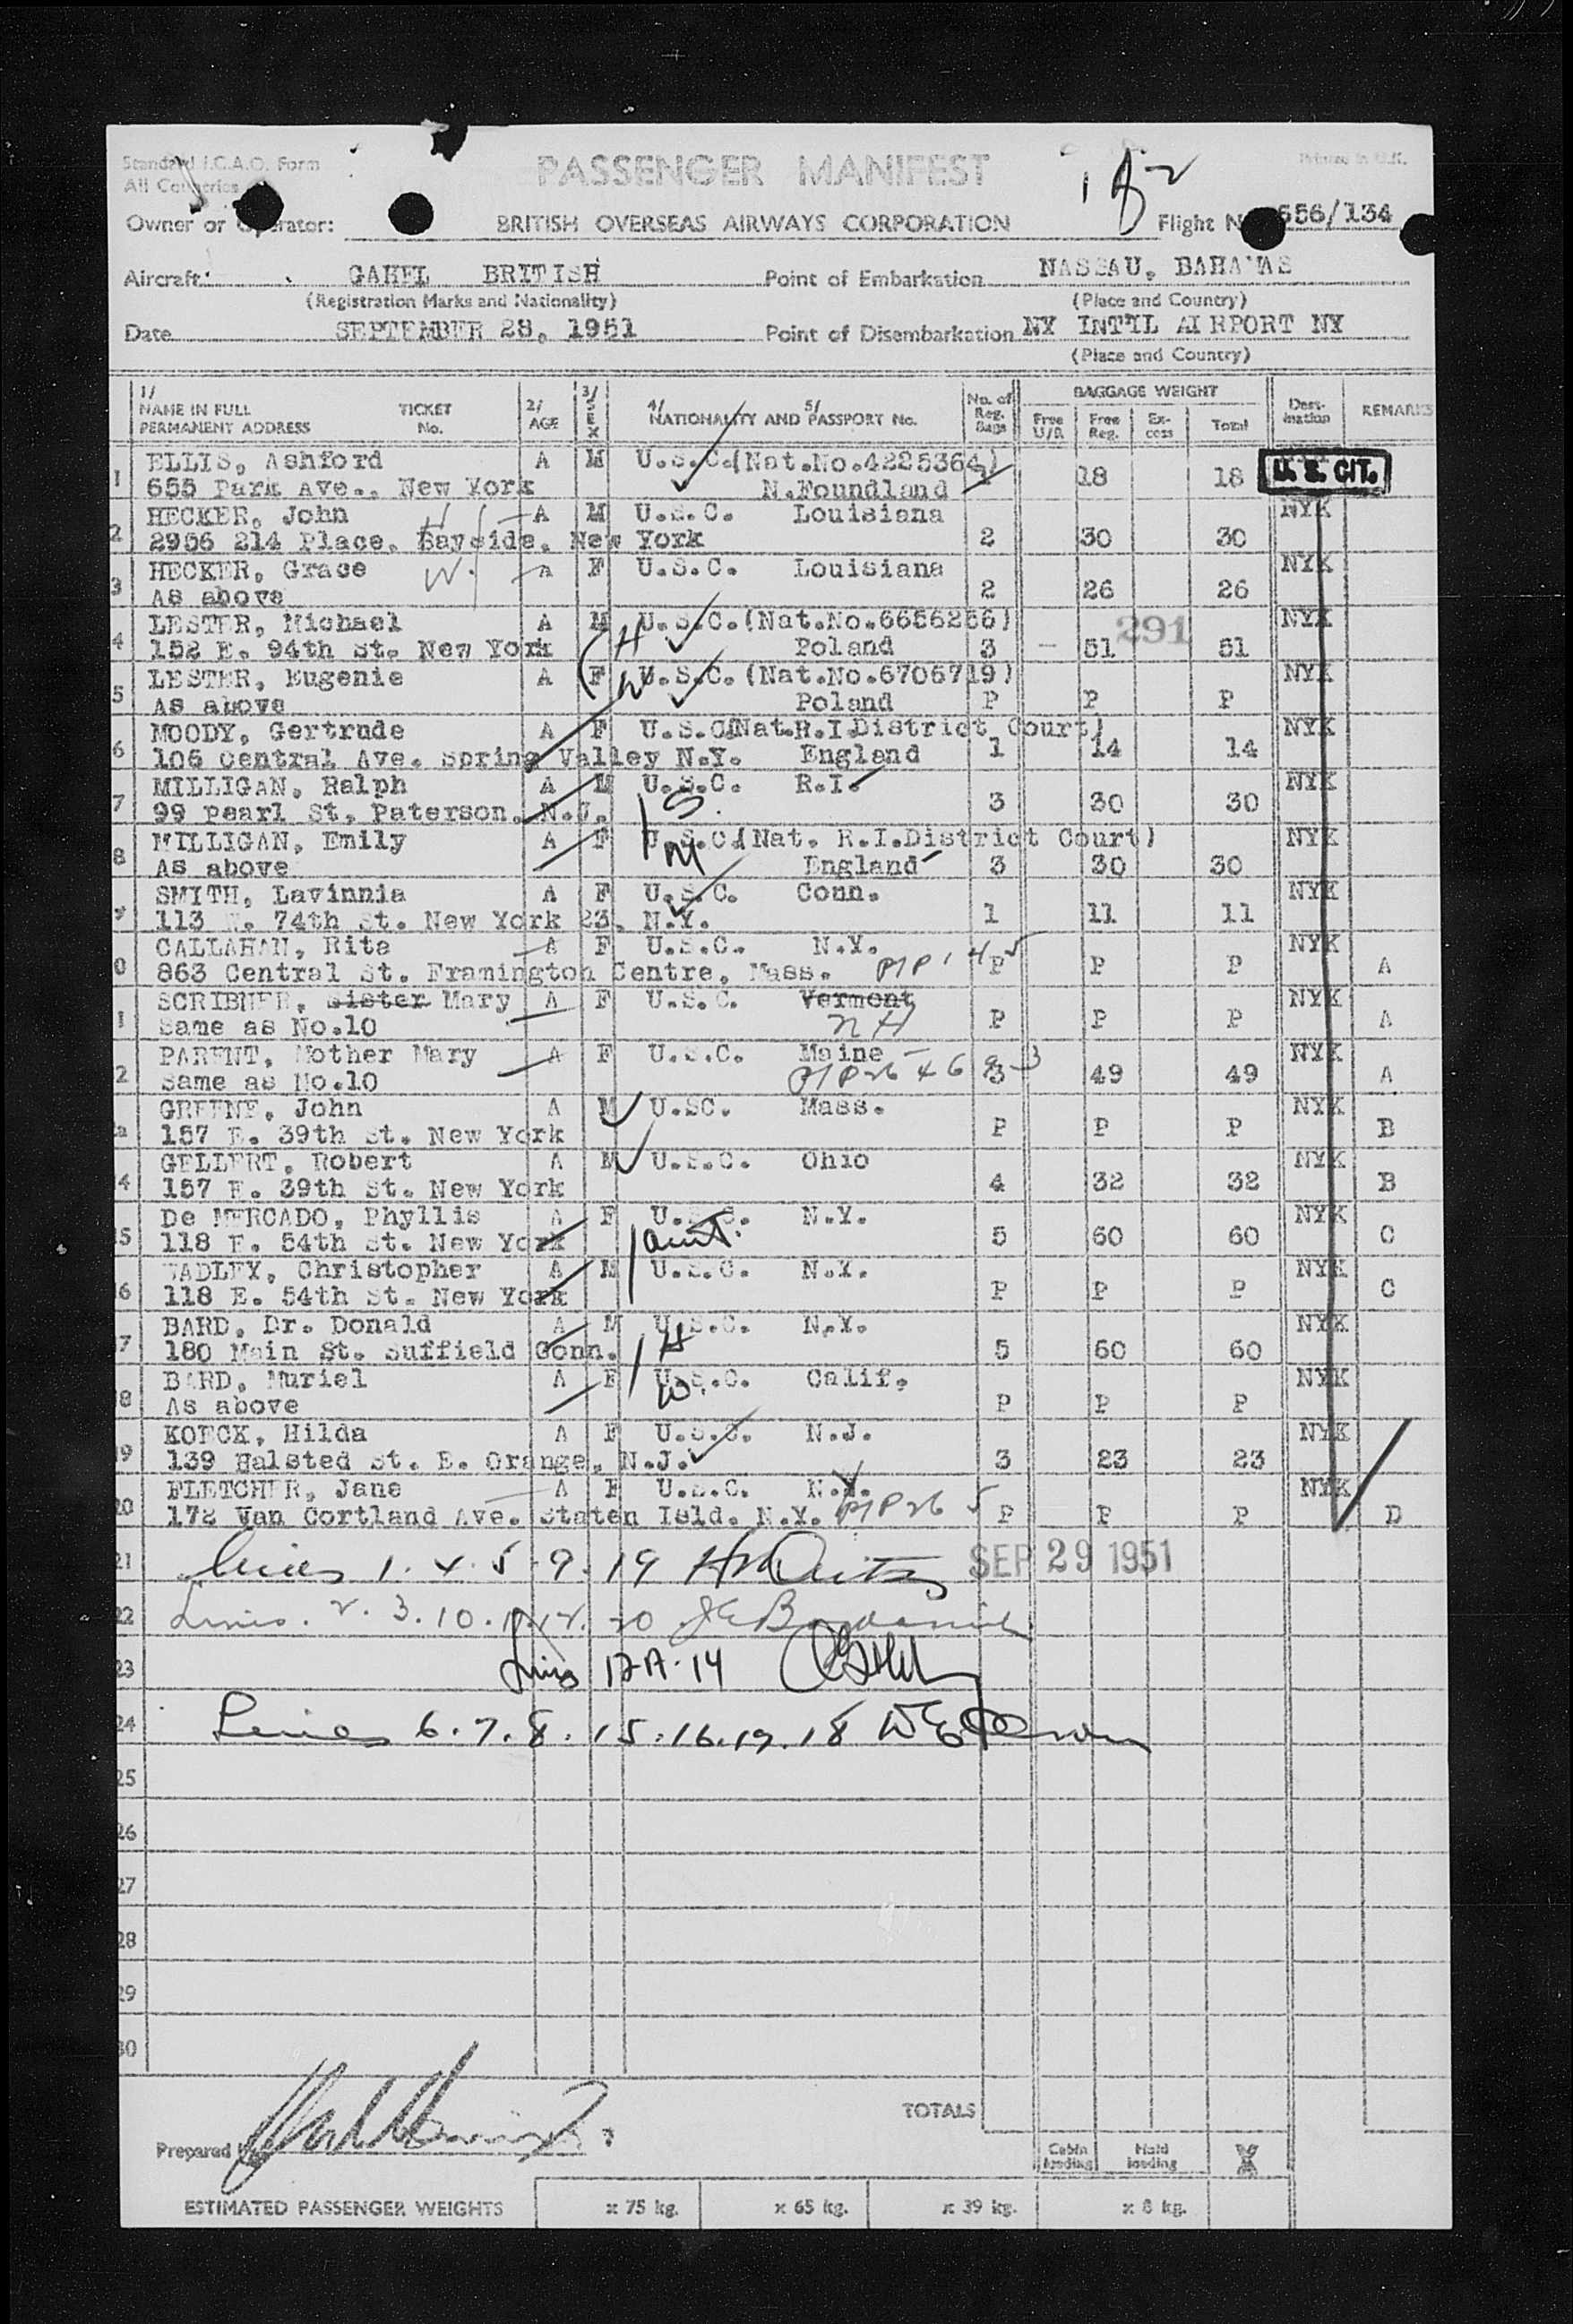 Standard I.C.A.O. Form
PASSENGER MANIFEST
Printed in U.K.
All Categories
Owner or Operator: BRITISH OVERSEAS AIRWAYS CORPORATION Flight No 556/134
Aircraft GAHEL BRITISH Point of Embarkation NASSAU, BAHAMAS
(Registration Marks and Nationality) (Place and Country)
Date SEPTEMBER 28, 1951 Point of Disembarkation NY INT'L AIRPORT NY
(Place and Country)
1/ NAME IN FULL PERMANENT ADDRESS TICKET No. 2/ AGE 3/ SEX 4/ NATIONALITY AND 5/ PASSPORT No. No. of Reg. Bags BAGGAGE WEIGHT Free U/R Free Reg. Ex-cess Total Dest-ination REMARKS
1 ELLIS, Ashford A M U.S.C.(Nat.No.4225364)
655 Park Ave., New York N.Foundland 18 18 U. S. CIT.
2 HECKER, John H A M U.S.C. Louisiana NYK
2956 214 Place, Bayside, New York 2 30 30
3 HECKER, Grace W A F U.S.C. Louisiana NYK
As above 2 26 26
4 LESTER, Michael A M H U.S.C.(Nat.No.6656256) 291 NYK
152 E. 94th St. New York Poland 3 - 51 51
5 LESTER, Eugenie A F W U.S.C.(Nat.No.6706719) NYK
As above Poland P P P
6 MOODY, Gertrude A F U.S.C(Nat.R.I.District Court) NYK
106 Central Ave. Spring Valley N.Y. England 1 14 14
7 MILLIGAN, Ralph A M U.S.C. R.I. NYK
99 Pearl St, Paterson, N.J. S. 3 30 30
8 MILLIGAN, Emily A F U.S.C.(Nat. R.I.District Court) NYK
As above M England 3 30 30
9 SMITH, Lavinnia A F U.S.C. Conn. NYK
113 W. 74th St. New York 23, N.Y. 1 11 11
0 CALLAHAN, Rita A F U.S.C. N.Y. NYK
863 Central St. Framington Centre, Mass. P P P A
1 SCRIBNER, Sister Mary A F U.S.C. Vermont NYK
Same as No.10 N H P P P A
2 PARENT, Mother Mary A F U.S.C. Maine NYK
Same as No.10 3 49 49 A
GREENE, John A M U.SC. Mass. NYK
157 E. 39th St. New York P P P B
4 GELLERT, Robert A M U.S.C. Ohio NYK
157 E. 39th St. New York 4 32 32 B
5 De MERCADO, Phyllis A F U.S.C. N.Y. NYK
118 E. 54th St. New York aunt. 5 60 60 C
6 WADLEY, Christopher A M U.S.C. N.Y. NYK
118 E. 54th St. New York P P P C
7 BARD, Dr. Donald A M U.S.C. N.Y. NYK
180 Main St. Suffield Conn. H 5 60 60
8 BARD, Muriel A F U.S.C. Calif. NYK
As above W. P P P
9 KOECK, Hilda A F U.S.C. N.J. NYK
139 Halsted St. E. Orange, N.J. 3 23 23
20 FLETCHER, Jane A F U.S.C. N.Y. NYK
172 Van Cortland Ave. Staten Isld. N.Y. P P P D
21 Lines 1. 4. 5. 9. 19 SEP 29 1951
22 Lines. 2. 3. 10. 11. 12. 20
23 Lines 12-A-14
24 Lines 6. 7. 8. 15. 16. 17. 18
25
26
27
28
29
30
TOTALS
Prepared by
Cabin loading Hold loading
ESTIMATED PASSENGER WEIGHTS x 75 kg. x 65 kg. x 39 kg. x 8 kg.